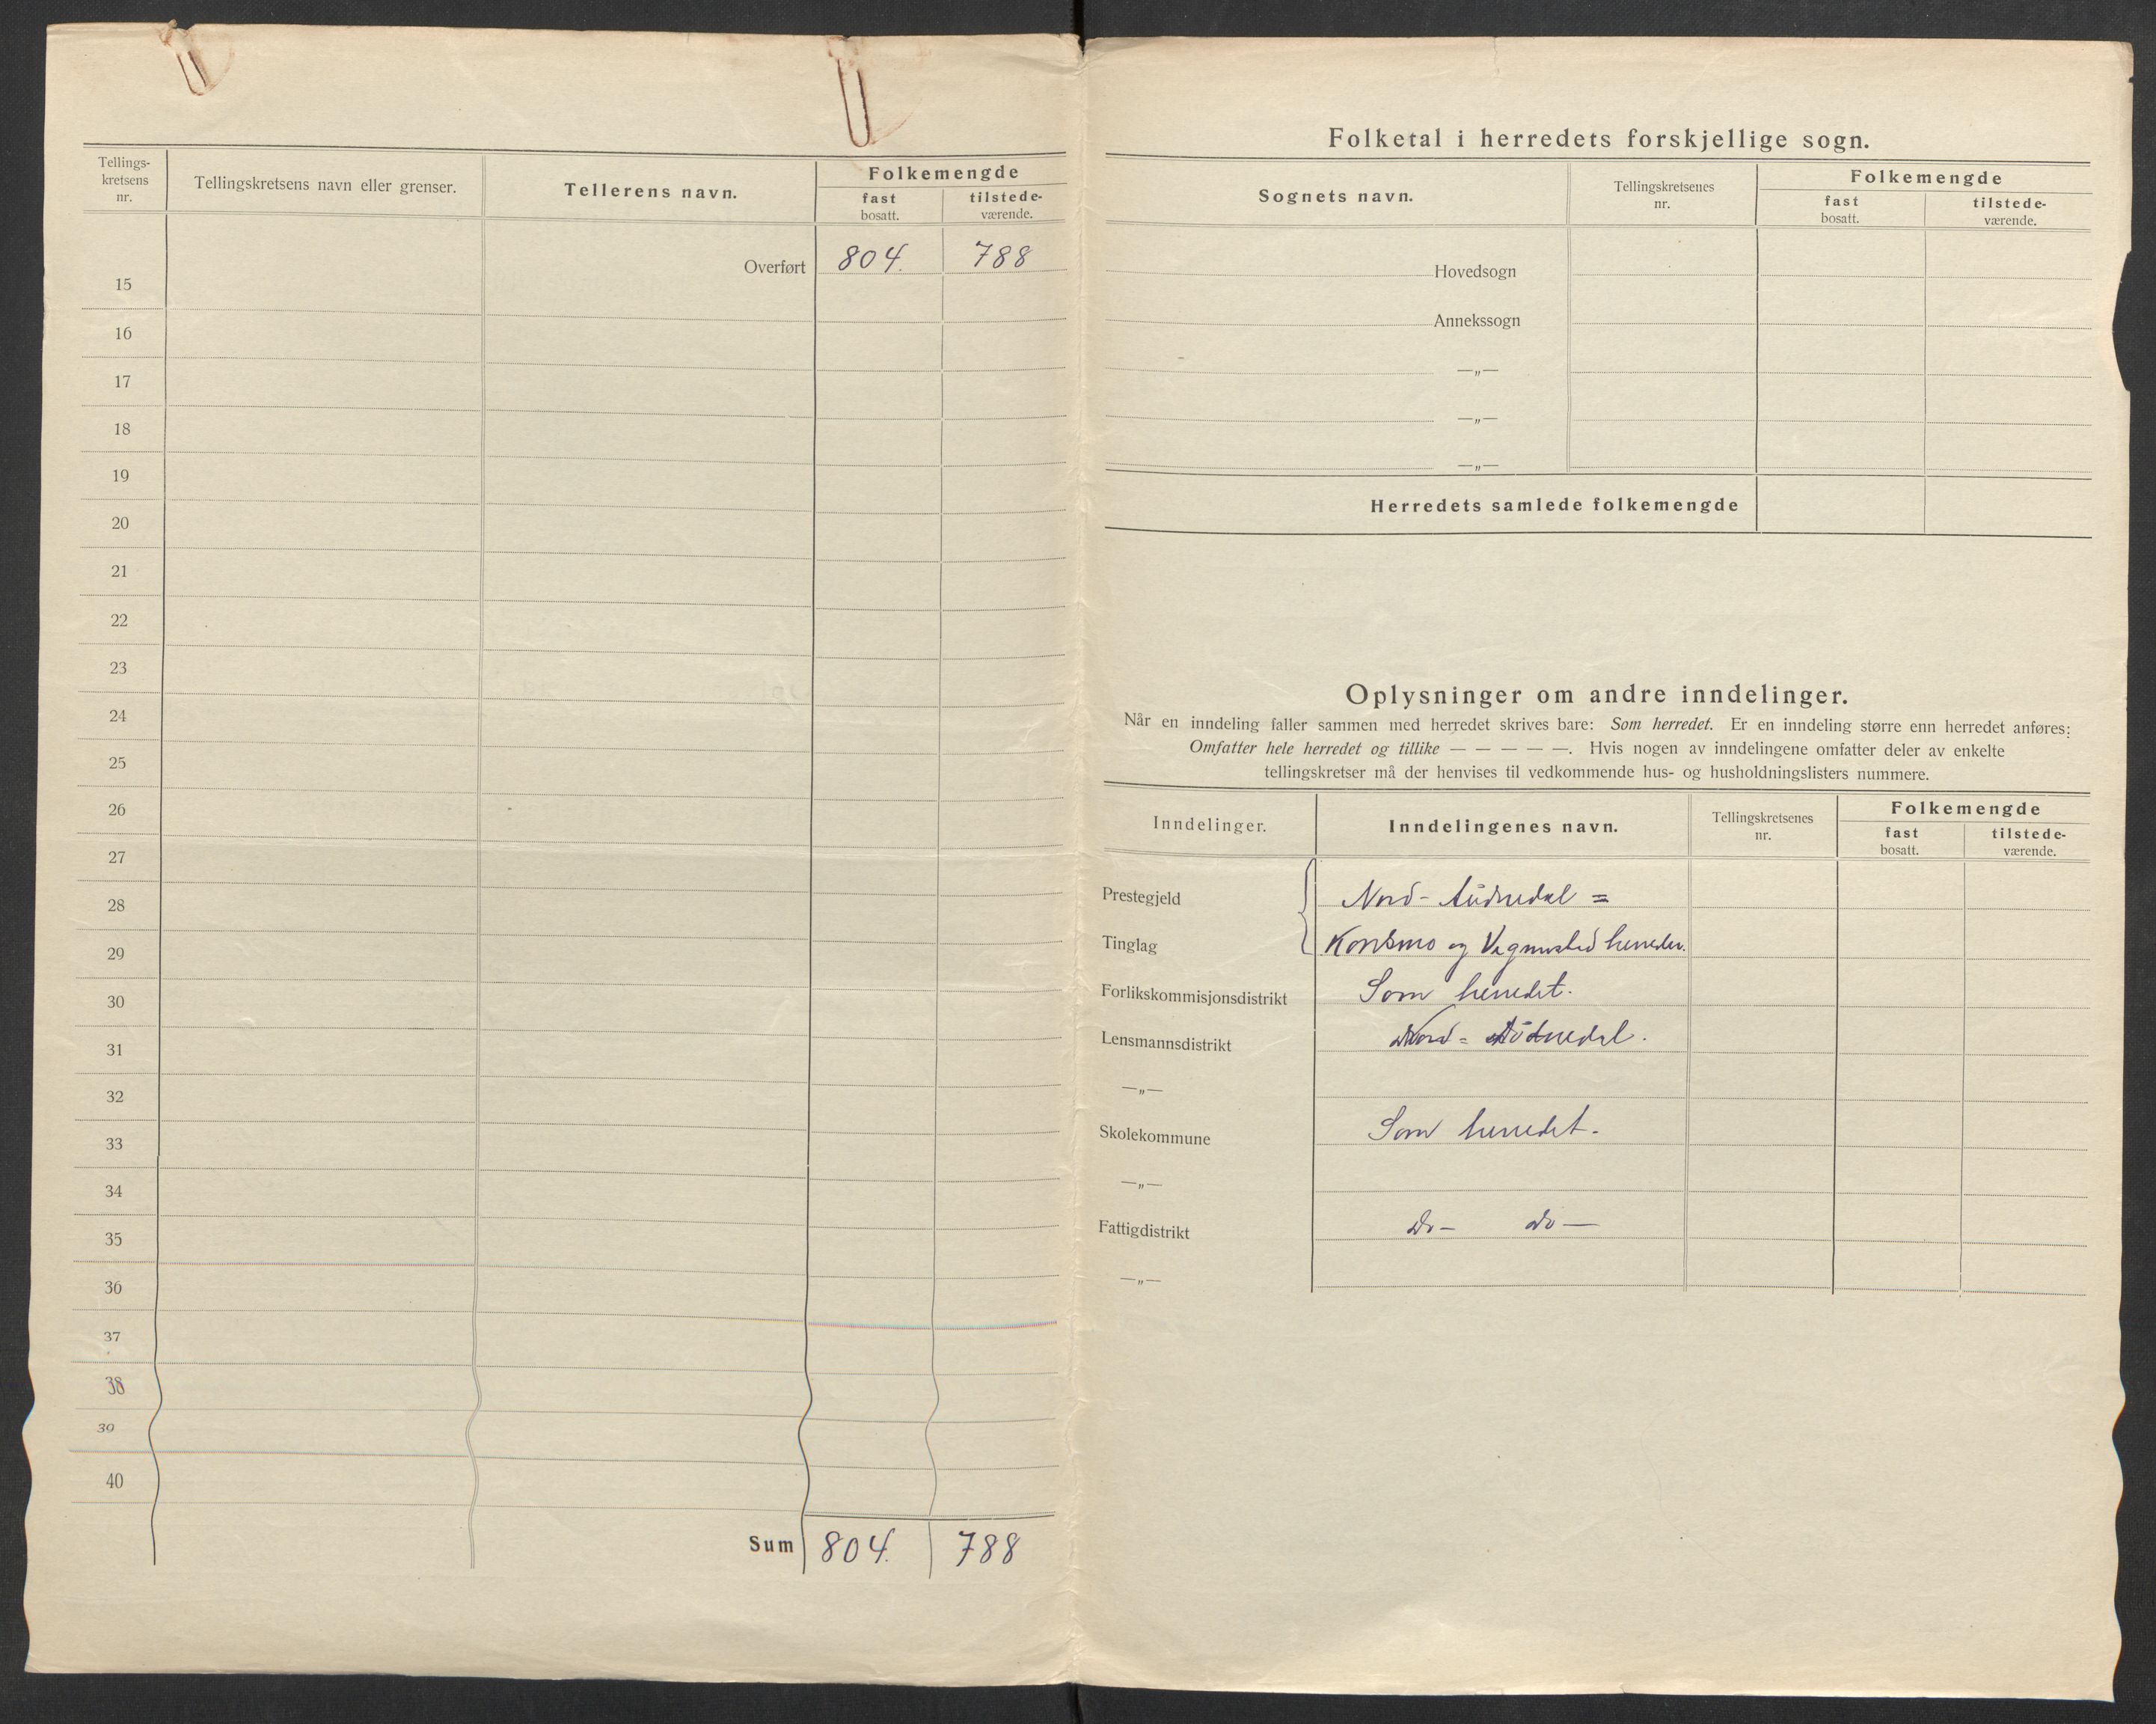 Tellings-
kretsens
nr.
Tellingskretsens navn eller grenser.
Tellerens navn.
Folkemengde
fast
bosatt.
tilstede-
værende.
Overført 804. 788
15
16
17
18
19
20
21
22
23
24
25
26
27
28
29
30
31
32
33
34
35
36
37
38
39
40
Sum 804. 788
Folketal i herredets forskjellige sogn.
Sognets navn.
Tellingskretsenes
nr.
Folkemengde
fast
bosatt.
tilstede-
værende.
Hovedsogn
Annekssogn
—„—
—„—
—„—
Herredets samlede folkemengde
Oplysninger om andre inndelinger.
Når en inndeling faller sammen med herredet skrives bare: Som herredet. Er en inndeling større enn herredet anføres:
Omfatter hele herredet og tillike — — — — —. Hvis nogen av inndelingene omfatter deler av enkelte
tellingskretser må der henvises til vedkommende hus- og husholdningslisters nummere.
Inndelinger.
Inndelingenes navn.
Tellingskretsenes
nr.
Folkemengde
fast
bosatt.
tilstede-
værende.
Prestegjeld Nord-Audnedal =
Tinglag Konsmo og Vigmostad herreder.
Forlikskommisjonsdistrikt Som herredet.
Lensmannsdistrikt Nord-Audnedal.
—„—
Skolekommune Som herredet.
—„—
Fattigdistrikt do— do—
—„—